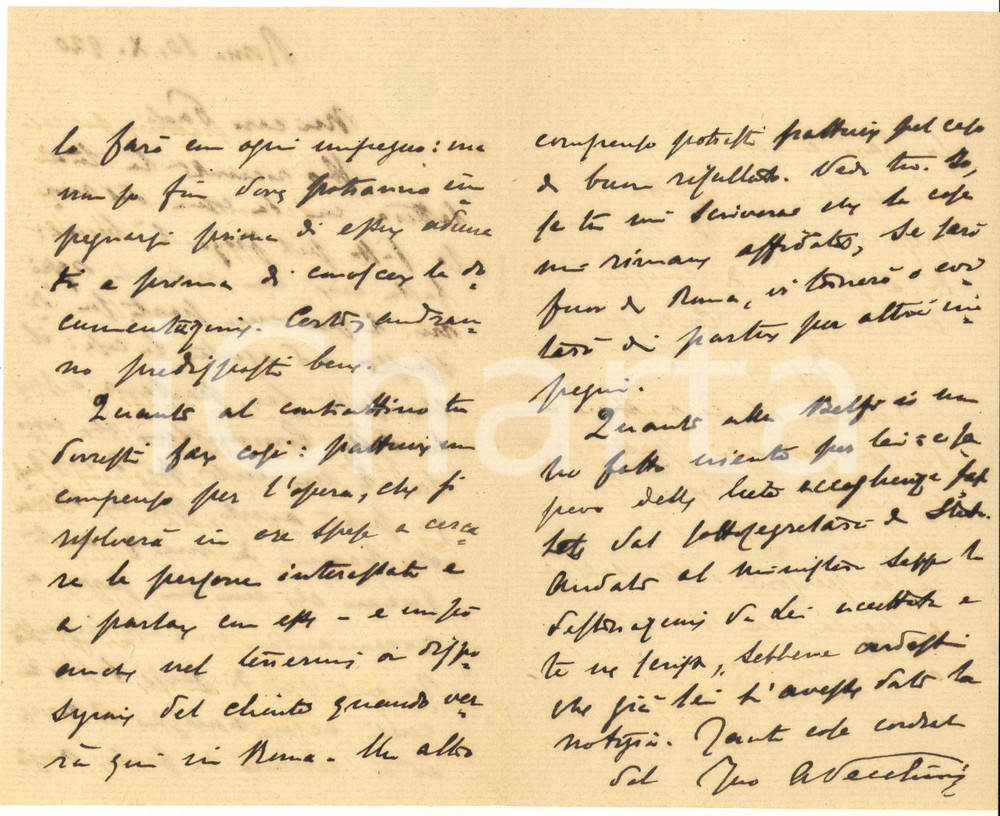 lo farò con ogni impegno: ma
non so fin dove potranno im
pegnarsi prima di essere aduna
ti e prima di conoscere la do
cumentazione. Certo, andran-
no predisposti bene.
Quanto al contrattino tu
dovresti fare così: pattuire un
compenso per l'opera, che si
risolverà in ore spese a cerca-
re le persone interessate e
a parlare con esse - e
anche nel tenermi a dispo-
sizione del cliente quando ver-
rà qui in Roma. Un altro
compenso potresti pattuire pel caso
di buon risultato. Vedi tu. Io,
se tu mi scriverai che la cosa
mi rimane affidata, se sarò
fuor di Roma, vi tornerò o evi-
terò di partire per altri im-
pegni.
Quanto alla io non
ho fatto niente per lei:
pevo delle liete accoglienze fat
tele dal sottosegretario di Stato.
Andato al ministero seppi la
destinazione da Lei accettata e
te ne scrissi, sebbene credessi
che già lei t'avesse dato la
notizia. Tante cose cordiali
dal tuo AVecchini